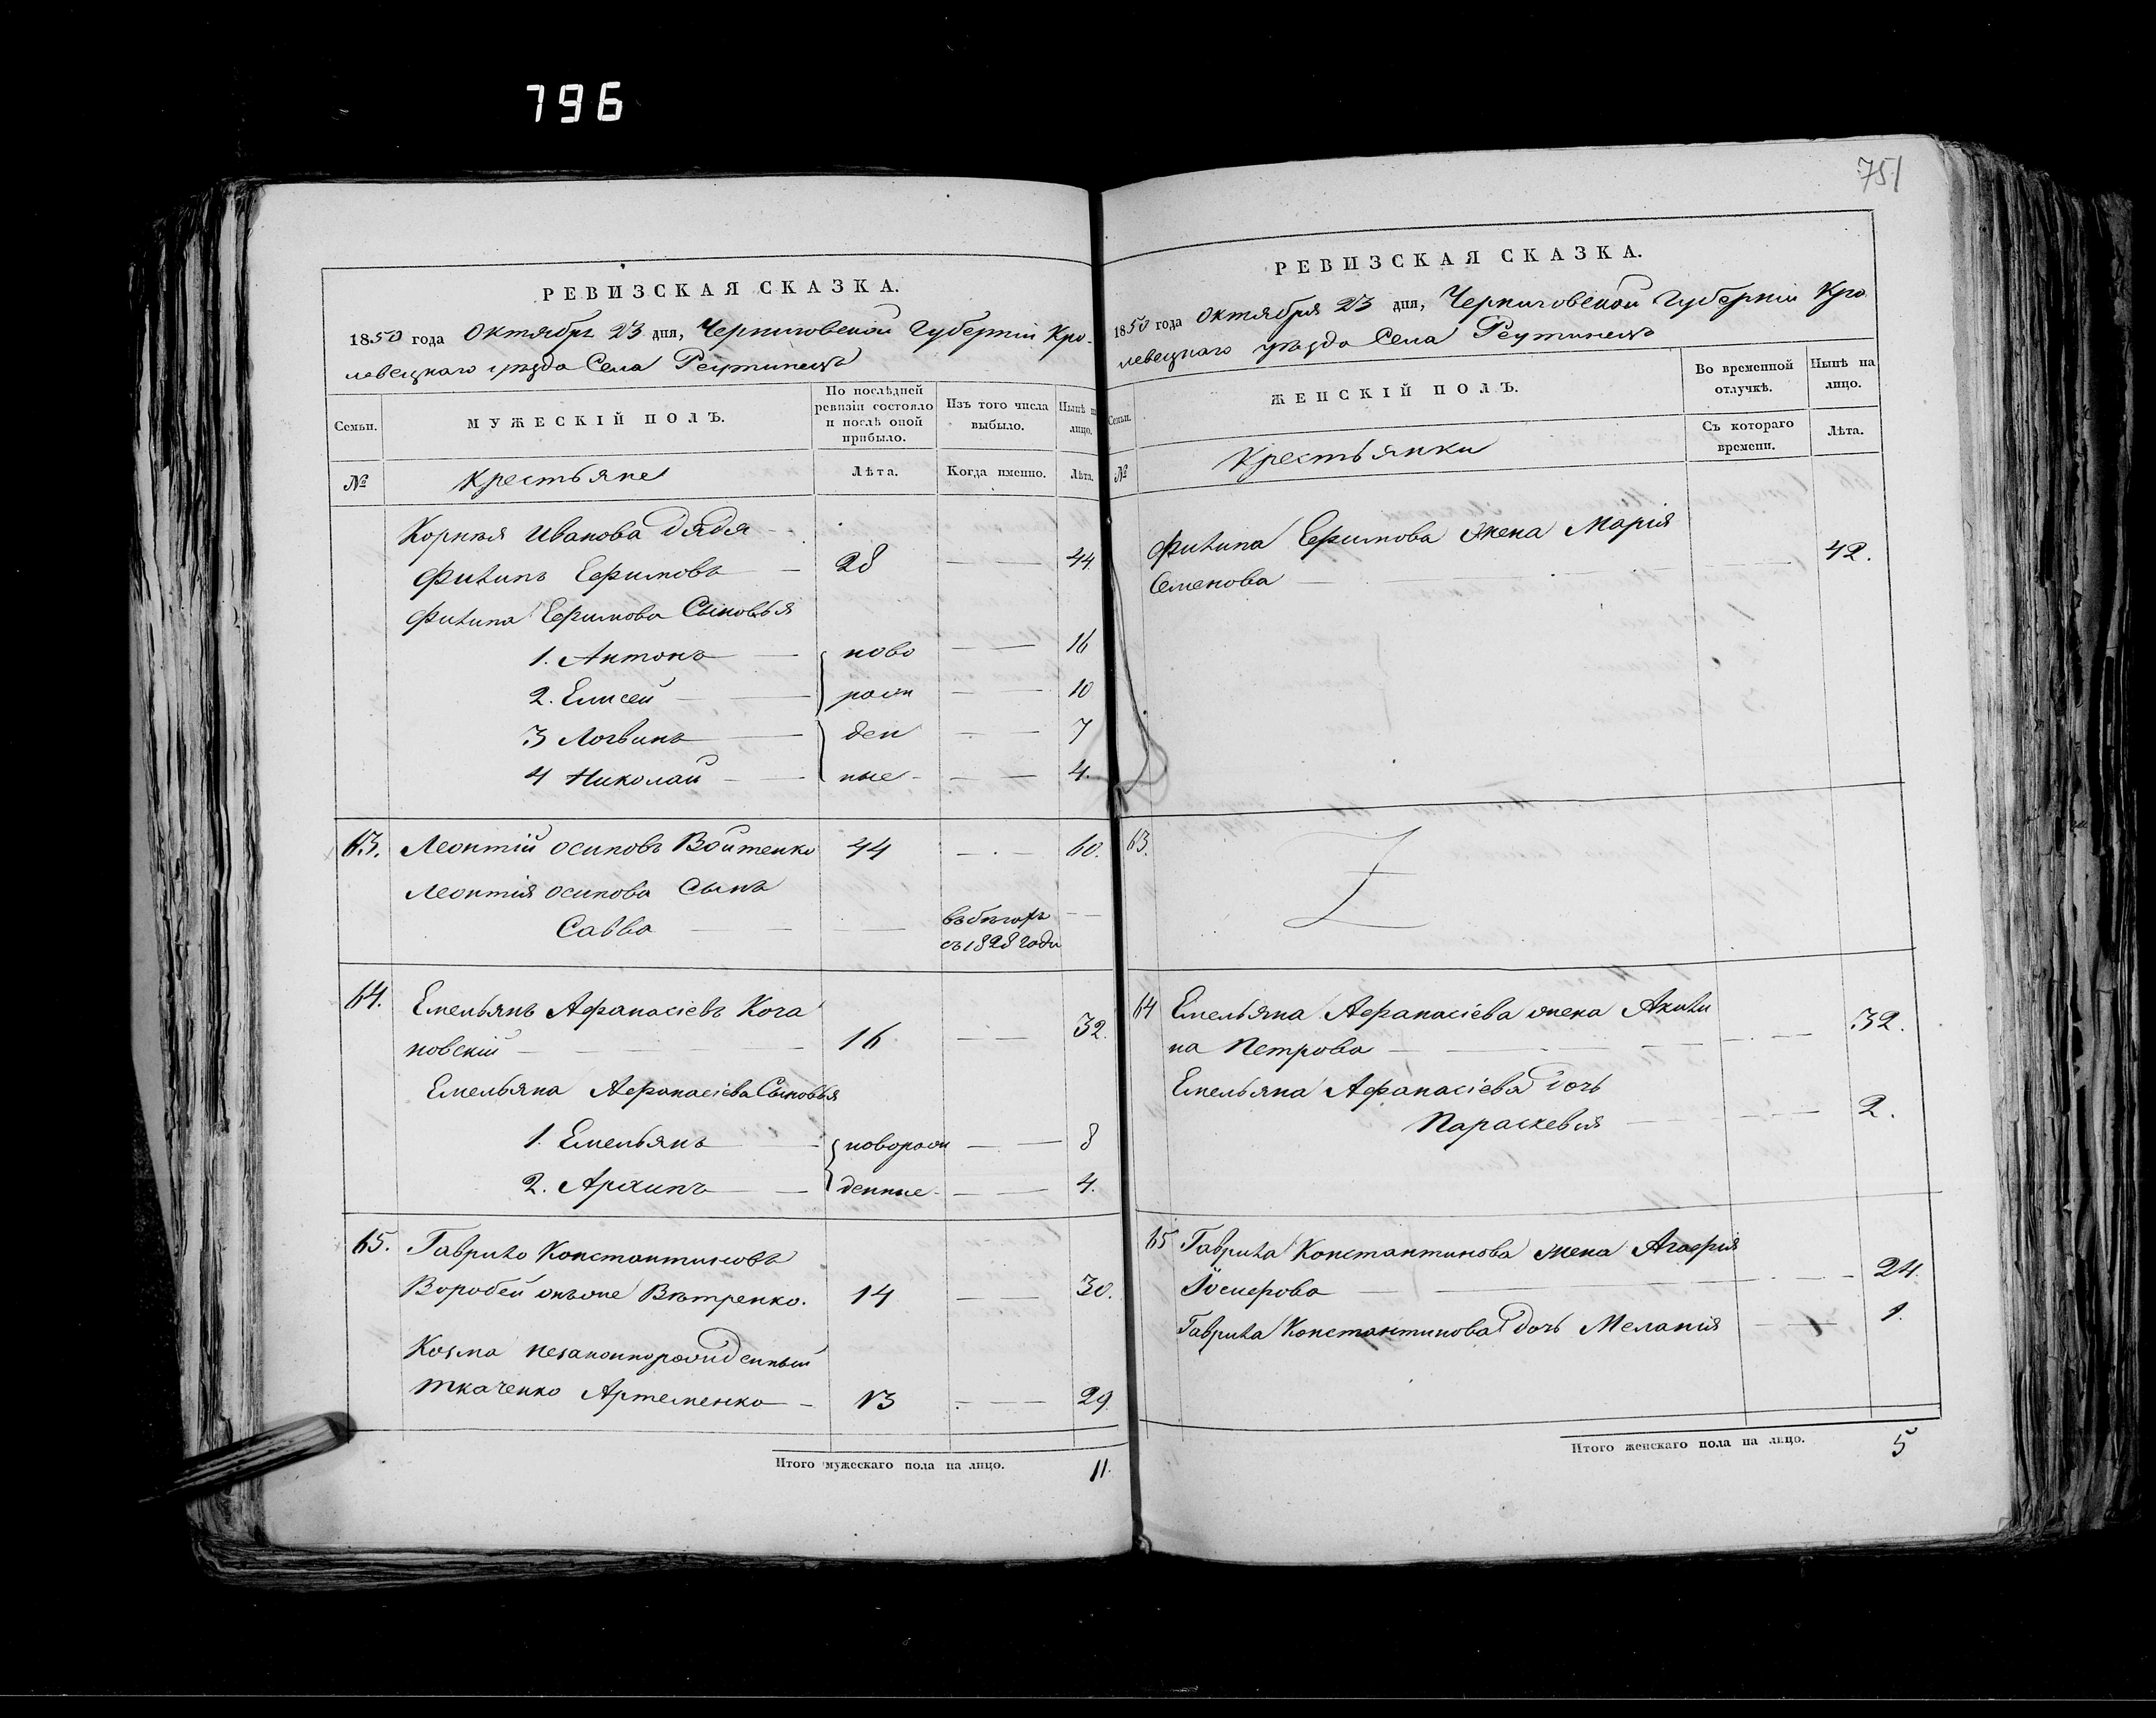 796
751
РЕВИЗСКАЯ СКАЗКА.
1850 года Октября 23 дня, Черниговской Губерніи Кро-
левецкаго уѣзда Села Реутинецъ
Семьи.
МУЖЕСКІЙ ПОЛЪ.
По послѣдней
ревизіи состояло
и послѣ оной
прибыло.
Изъ того числа
выбыло.
Нынѣ на
лицо.
№
Крестьяне
Лѣта.
Когда именно.
Лѣта.
Корнѣя Иванова дядя
Филипъ Ефимовъ 28 44.
Филипа Ефимова Сыновья
1. Антонъ ново 16
2. Елисей рож 10
3 Логвинъ ден 7
4 Николай ные 4.
63. Леонтій Осиповъ Войтенко 44 60.
Леонтія Осипова Сынъ
Савва въ бѣгахъ
съ 1828 года
64. Емельянъ Афанасіевъ Кога
новскій 16 32.
Емельяна Афанасіева Сыновья
1. Емельянъ новорож 8
2. Архипъ денные 4.
65. Гаврило Константиновъ
Воробей онъже Вѣтренко. 14 30.
Козма незаконнорожденный
Ткаченко Артеменко 13 29.
Итого мужескаго пола на лицо. 11.
РЕВИЗСКАЯ СКАЗКА.
1850 года Октября 23 дня, Черниговской Губерніи Кро
левецкаго уѣзда Села Реутинецъ
Семьи.
ЖЕНСКІЙ ПОЛЪ.
Во временной
отлучкѣ.
Нынѣ на
лицо.
Съ котораго
времени.
Лѣта.
№
Крестьянки
Филипа Ефимова жена Марія
Семенова 42.
63.
64 Емельяна Афанасіева жена Акили
на Петрова 32.
Емельяна Афанасіева дочь
Параскевія 2.
65 Гаврила Константинова жена Агафія
24.
Гаврила Константинова дочь Меланія 1.
Итого женскаго пола на лицо. 5